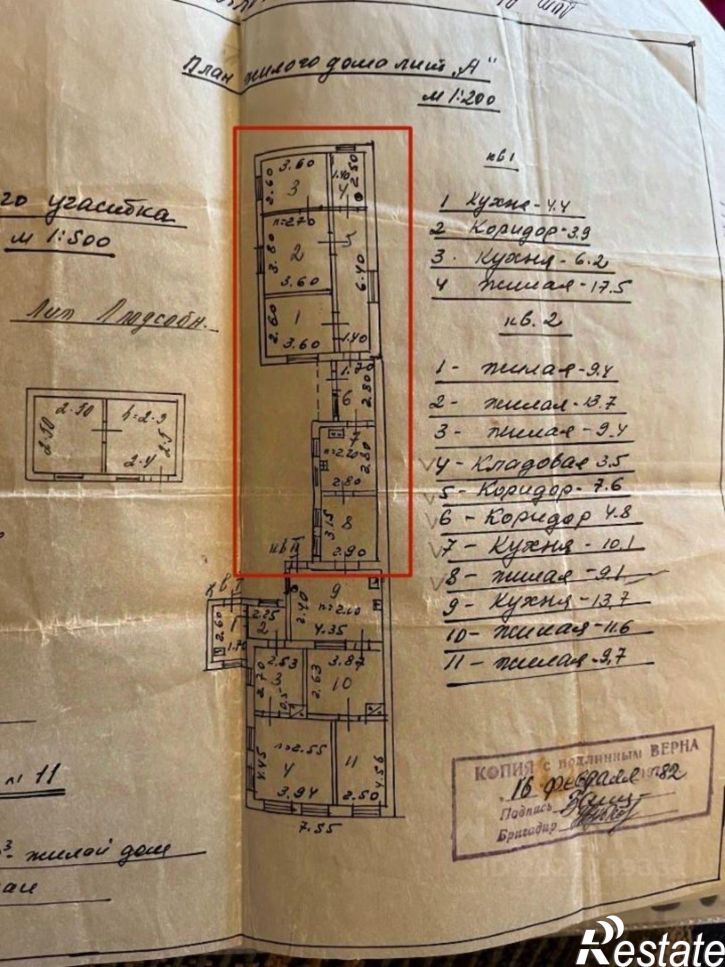 План жилого дома лит „А"
М 1:200
го участка
М 1:500
Лит Подсобн.
2.90
2.50
h=2.9
2.4
2.5
кв 1
1 Кухня-4.4
2 Коридор-3.9
3. Кухня-6.2
4 жилая-17.5
кв. 2
1- жилая-9.4
2- жилая-13.7
3- жилая-9.4
4- Кладовая 3.5
5- Коридор-7.6
6- Коридор 4.8
7- Кухня-10.1
8- жилая-9.1
9- Кухня-13,7
10- жилая-11.6
11- жилая-9,7
3.60
2.60
3
1.40
2.50
4
h=2.70
3.80
2
3.60
5
6.40
2.60
1
3.60
1.40
1.70
6
2.80
7
h=2.20
2.80
2.80
3.15
8
2.90
кв II
9
2.40
h=2.60
4.35
кв I
2.60
1
1.70
2.25
2
2.53
2.70
3
0.5
3.87
2.63
10
h=2.55
4.45
4
3.94
11
4.56
2.50
7.55
11
жилой дом
КОПИЯ с подлинным ВЕРНА
16 февраля 1982
Подпись
Бригадир
Restate